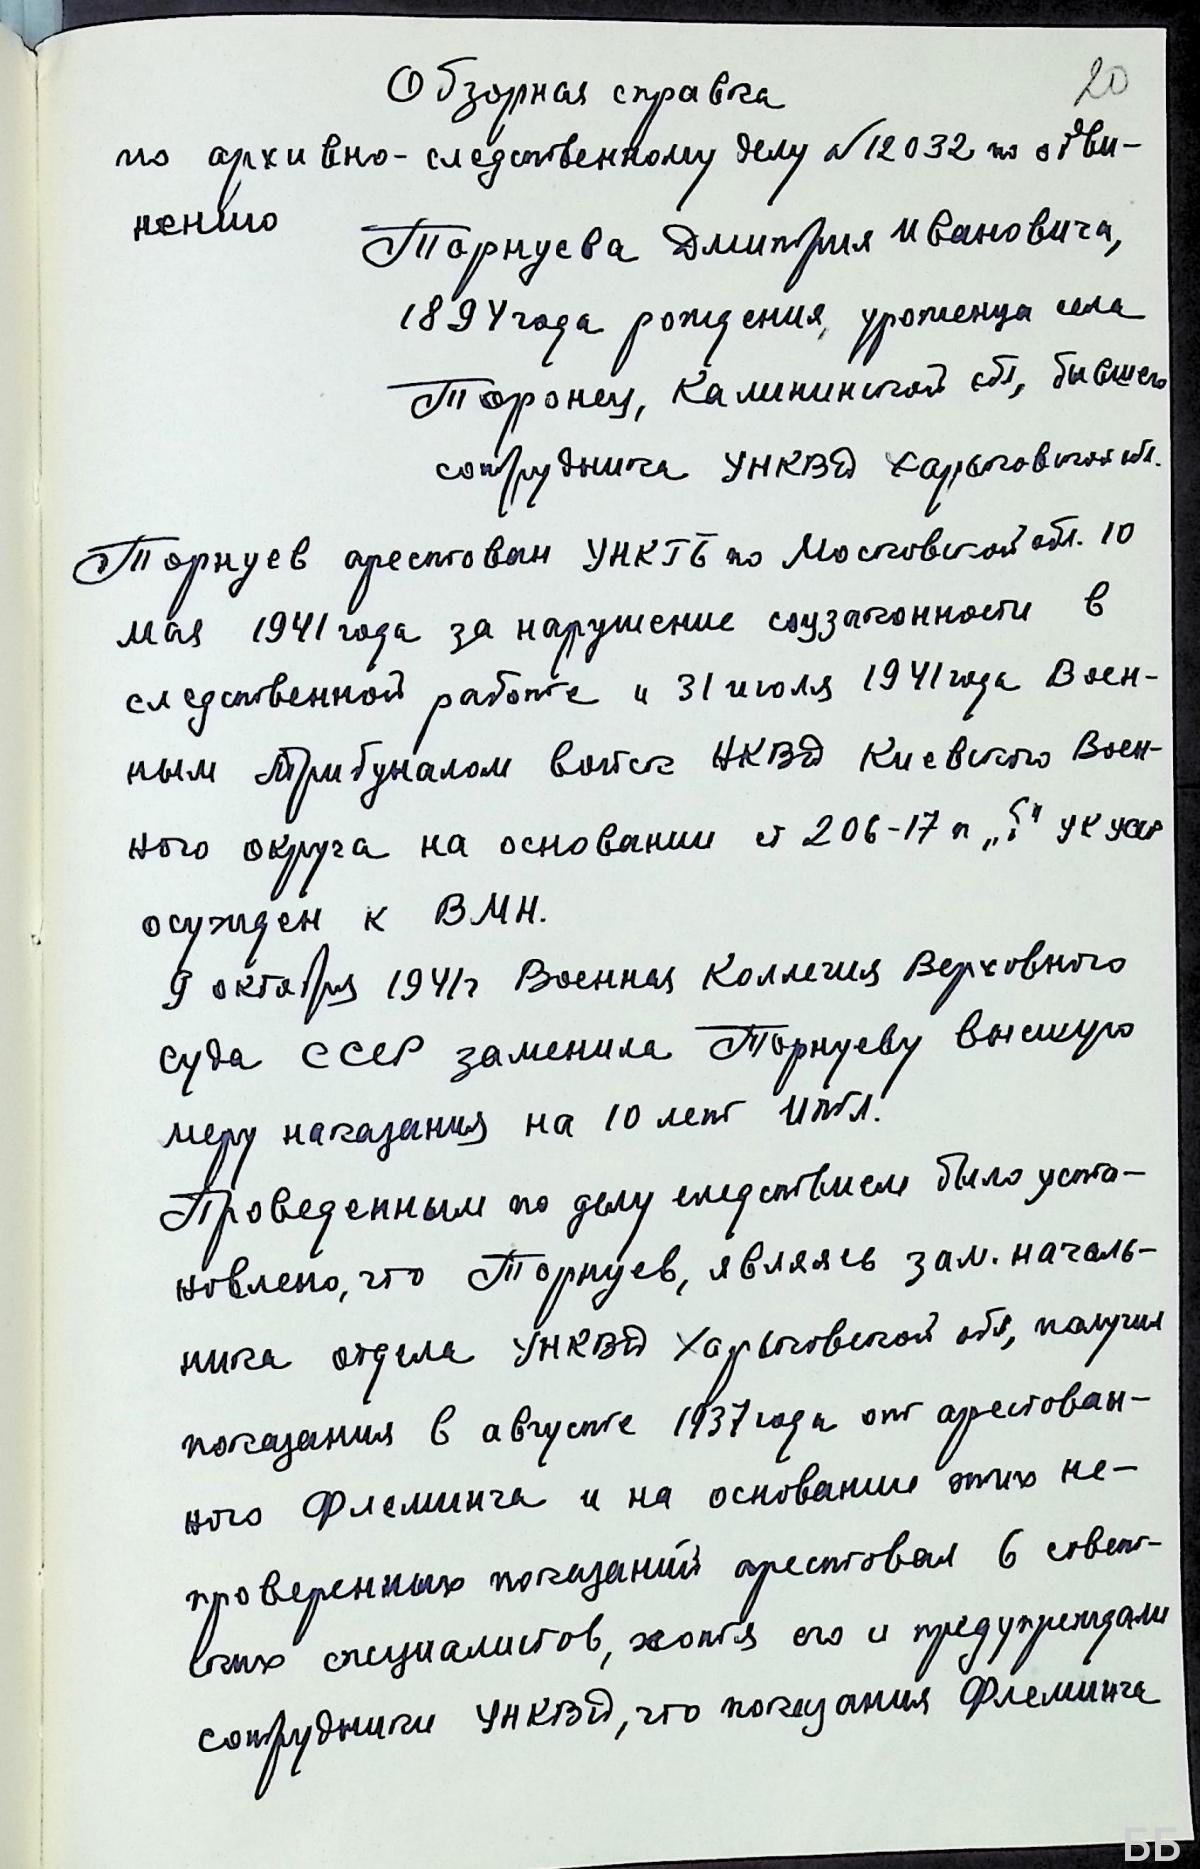 Обзорная справка
20
по архивно-следственному делу №12032 по обви-
нению
Торнуева Дмитрия Ивановича,
1894 года рождения, уроженца села
Торопец, Калининской обл, бывшего
сотрудника УНКВД Харьковской обл.
Торнуев арестован УНКГБ по Московской обл. 10
мая 1941 года за нарушение соцзаконности в
следственной работе и 31 июля 1941 года Воен-
ным Трибуналом войск НКВД Киевского Воен-
ного округа на основании ст 206-17 п „б" УК УССР
осужден к ВМН.
9 октября 1941г Военная Коллегия Верховного
суда СССР заменила Торнуеву высшую
меру наказания на 10 лет ИТЛ.
Проведенным по делу следствием было уста-
новлено, что Торнуев, являясь зам. началь-
ника отдела УНКВД Харьковской обл, получил
показания в августе 1937 года от арестован-
ного Флеминга и на основании этих не-
проверенных показаний арестовал 6 совет-
ских специалистов, хотя его и предупреждали
сотрудники УНКВД, что показания Флеминга
ББ